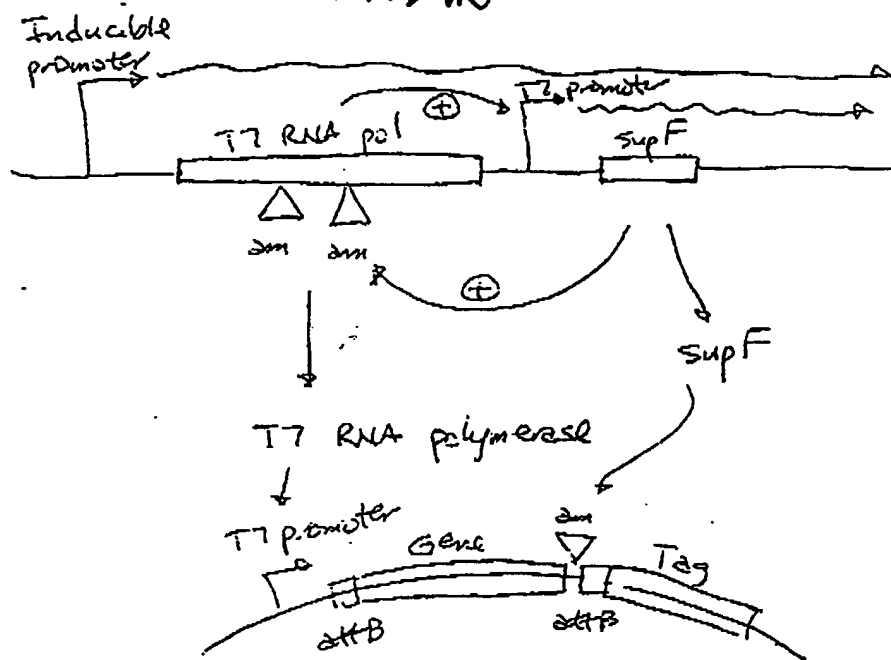 Inducible
promoter
T7 promoter
⊕
T7 RNA pol
supF
am am
⊕
supF
T7 RNA polymerase
am
T7 promoter
Gene
Tag
attB attB